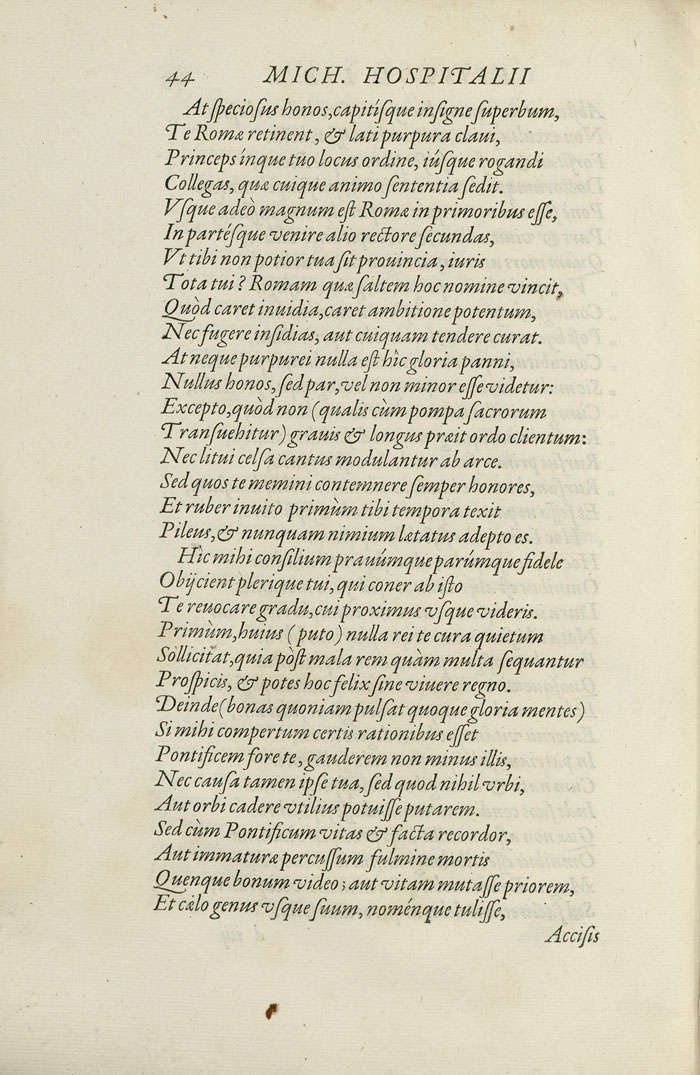 44 MICH. HOSPITALII
At speciosus honos, capitísque insigne superbum,
Te Romæ retinent, & lati purpura claui,
Princeps ínque tuo locus ordine, iúsque rogandi
Collegas, quæ cuique animo sententia sedit.
Vsque adeò magnum est Romæ in primoribus esse,
In partésque venire alio rectore secundas,
Vt tibi non potior tua sit prouincia, iuris
Tota tui? Romam quæ saltem hoc nomine vincit,
Quòd caret inuidia, caret ambitione potentum,
Nec fugere insidias, aut cuiquam tendere curat.
At neque purpurei nulla est hîc gloria panni,
Nullus honos, sed par, vel non minor esse videtur:
Excepto, quòd non (qualis cùm pompa sacrorum
Transuehitur) grauis & longus præit ordo clientum:
Nec litui celsa cantus modulantur ab arce.
Sed quos te memini contemnere semper honores,
Et ruber inuito primùm tibi tempora texit
Pileus, & nunquam nimium lætatus adepto es.
Hîc mihi consilium prauúmque parúmque fidele
Obijcient plerique tui, qui coner ab isto
Te reuocare gradu, cui proximus vsque videris.
Primùm, huius (puto) nulla rei te cura quietum
Sollicitat, quia pòst mala rem quàm multa sequantur
Prospicis, & potes hoc felix sine viuere regno.
Deinde (bonas quoniam pulsat quoque gloria mentes)
Si mihi compertum certis rationibus esset
Pontificem fore te, gauderem non minus illis,
Nec causa tamen ipse tua, sed quod nihil vrbi,
Aut orbi cadere vtilius potuisse putarem.
Sed cùm Pontificum vitas & facta recordor,
Aut immaturæ percussum fulmine mortis
Quenque bonum video; aut vitam mutasse priorem,
Et cælo genus vsque suum, noménque tulisse,
Accisis